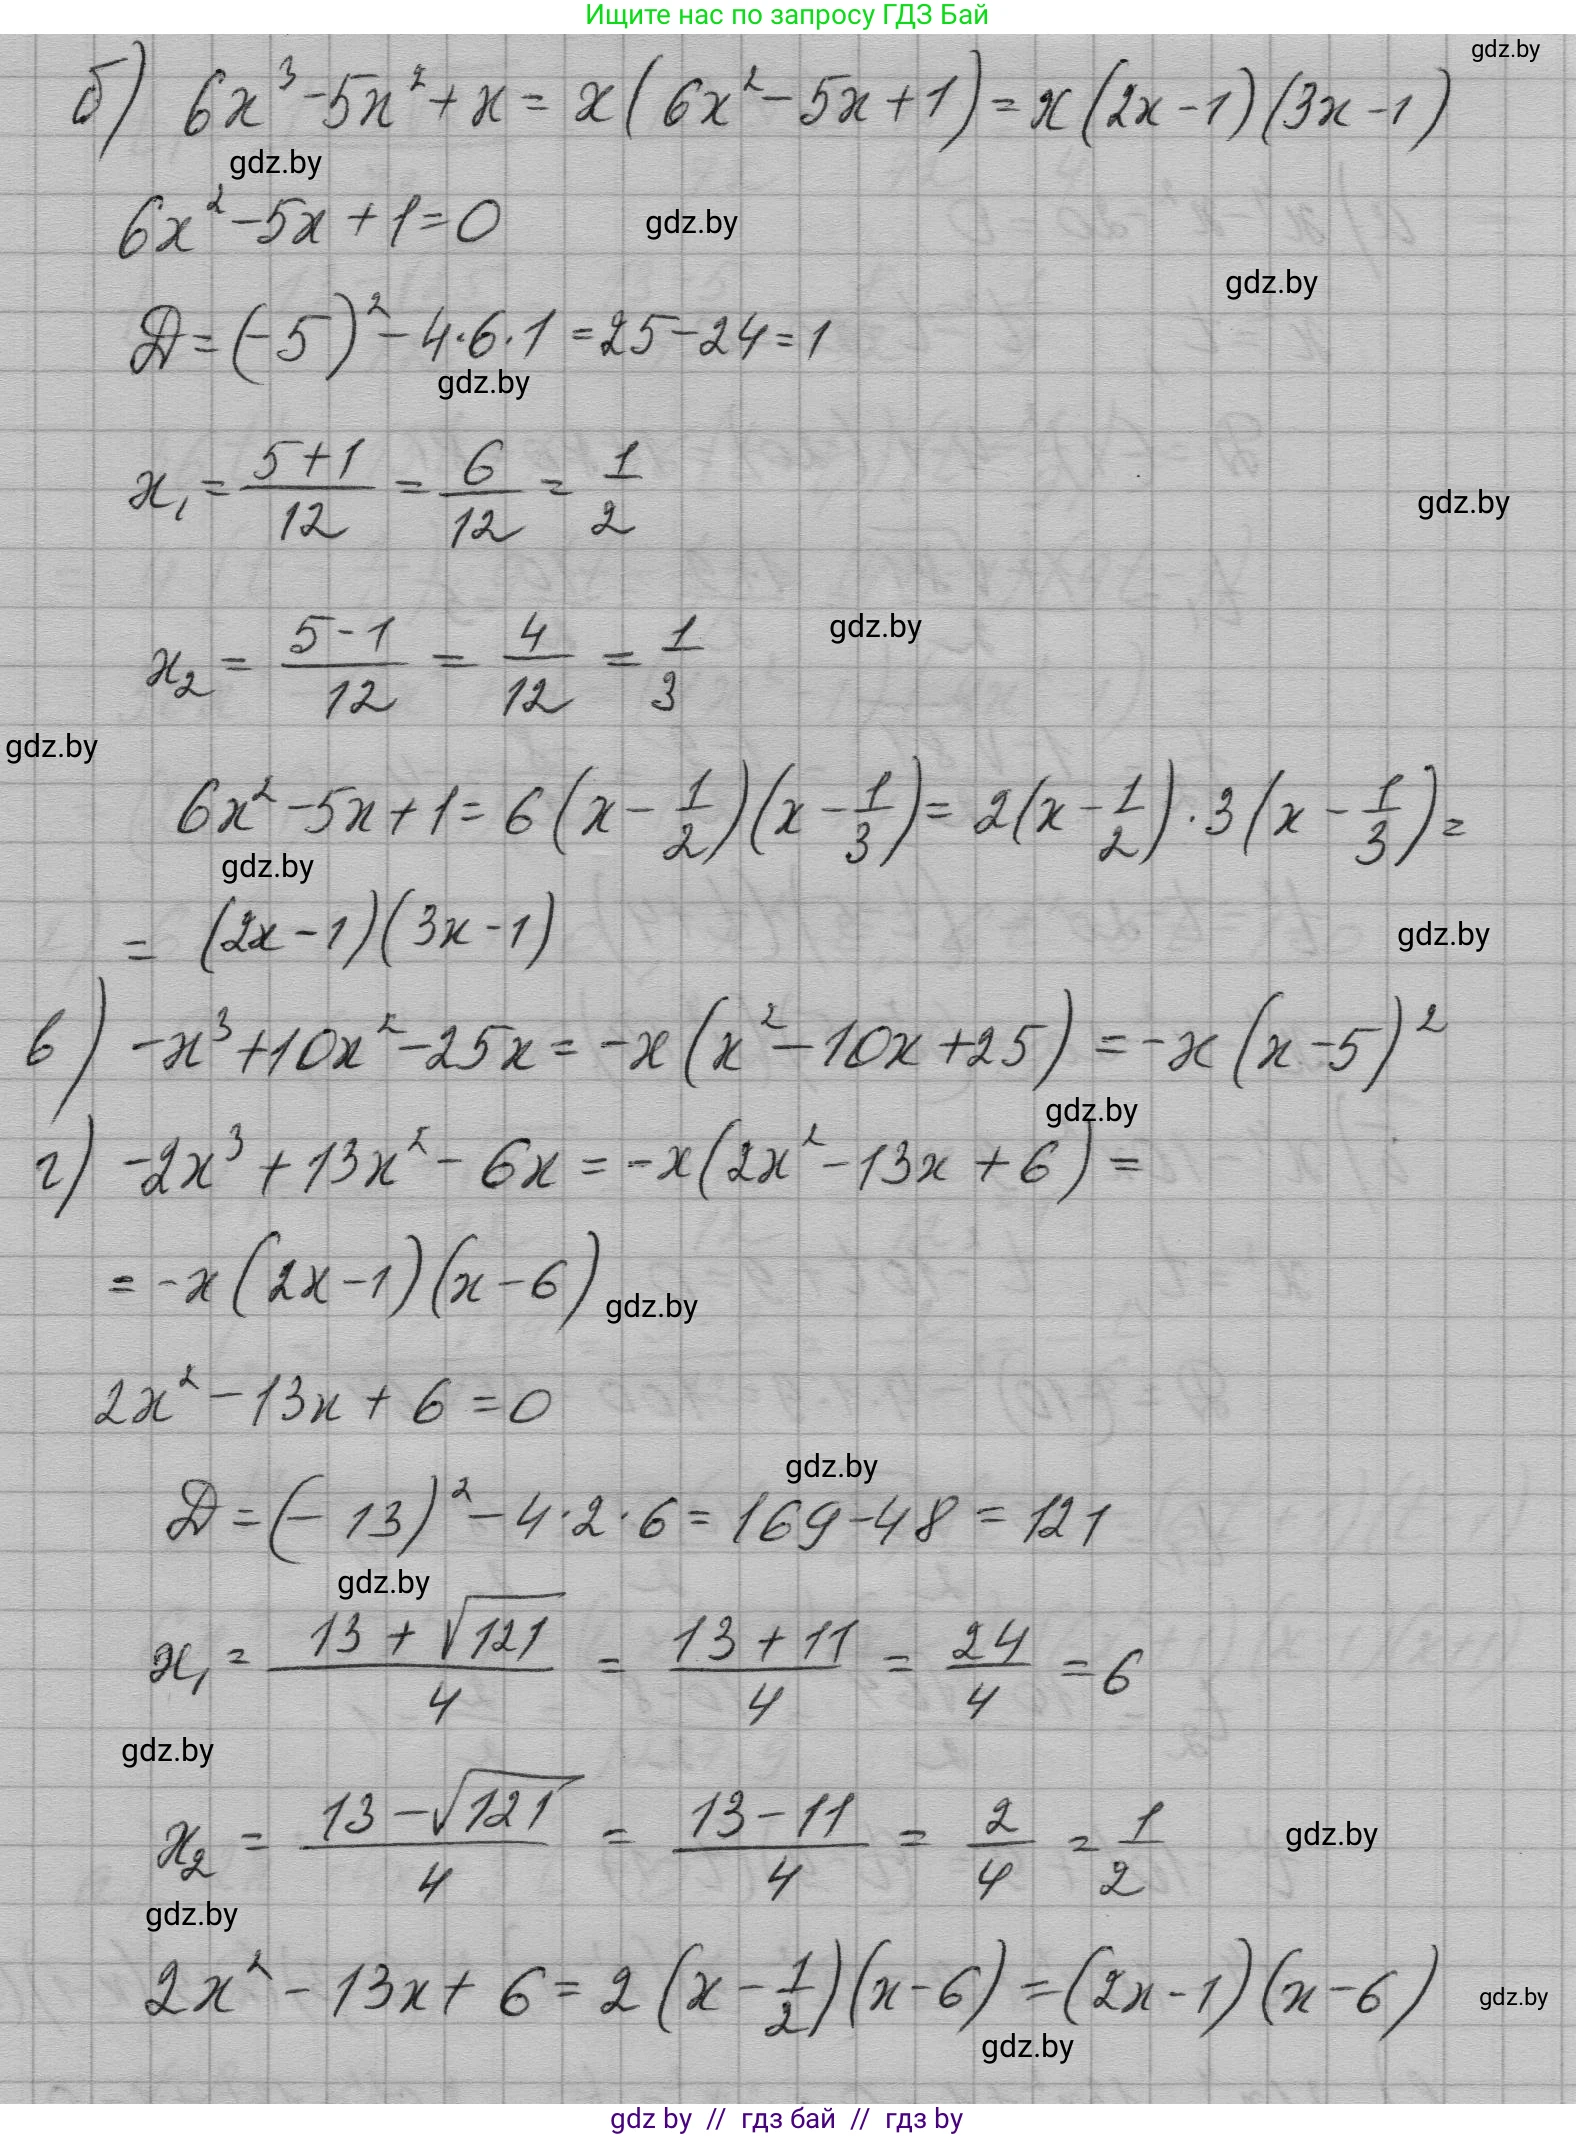 Ищите нас по запросу ГДЗ Бай
gdz.by
б) 6x³ - 5x² + x = x(6x² - 5x + 1) = x(2x - 1)(3x - 1)
gdz.by
6x² - 5x + 1 = 0
gdz.by
gdz.by
Д = (-5)² - 4·6·1 = 25 - 24 = 1
gdz.by
x₁ = (5+1)/12 = 6/12 = 1/2
gdz.by
x₂ = (5-1)/12 = 4/12 = 1/3
gdz.by
gdz.by
6x² - 5x + 1 = 6(x - 1/2)(x - 1/3) = 2(x - 1/2)·3(x - 1/3) =
gdz.by
= (2x - 1)(3x - 1)
gdz.by
в) -x³ + 10x² - 25x = -x(x² - 10x + 25) = -x(x - 5)²
gdz.by
г) -2x³ + 13x² - 6x = -x(2x² - 13x + 6) =
= -x(2x - 1)(x - 6)
gdz.by
2x² - 13x + 6 = 0
gdz.by
Д = (-13)² - 4·2·6 = 169 - 48 = 121
gdz.by
x₁ = (13 + √121)/4 = (13 + 11)/4 = 24/4 = 6
gdz.by
x₂ = (13 - √121)/4 = (13 - 11)/4 = 2/4 = 1/2
gdz.by
gdz.by
2x² - 13x + 6 = 2(x - 1/2)(x - 6) = (2x - 1)(x - 6)
gdz.by
gdz.by
gdz by // гдз бай // гдз by